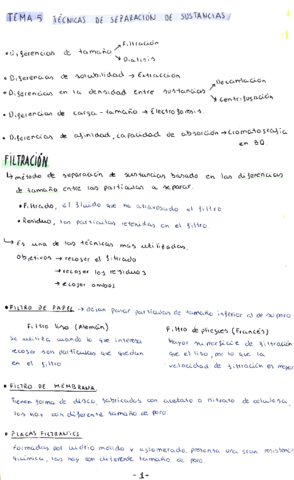 TEMA 5 TÉCNICAS DE SEPARACIÓN DE SUSTANCIAS
• Diferencias de tamaño → Filtración
→ Diálisis
• Diferencias de solubilidad → Extracción
• Diferencias en la densidad entre sustancias → Decantación
→ Centrifugación
• Diferencias de carga - tamaño → Electroforesis.
• Diferencias de afinidad, capacidad de absorción → Cromatografía
en BQ.
FILTRACIÓN
↳ método de separación de sustancias basado en las diferencias
de tamaño entre las partículas a separar.
• Filtrado, el fluido que ha atravesado el filtro
• Residuo, las partículas retenidas en el filtro.
↳ Es una de las técnicas más utilizadas.
Objetivos → recoger el filtrado
→ recoger los residuos
→ recoger ambos
• FILTRO DE PAPEL → dejan pasar partículas de tamaño inferior al de su poro
Filtro liso (Alemán)
Se utiliza cuando lo que interesa
recoger son partículas que quedan
en el filtro
Filtro de pliegues (Francés)
Mayor superficie de filtración
que el liso, por lo que la
velocidad de filtración es mayor
• FILTRO DE MEMBRANA.
Tienen forma de disco, fabricados con acetato o nitrato de celulosa,
los hay con diferente tamaño de poro.
• PLACAS FILTRANTES
Formadas por vidrio molido y aglomerado, presenta una gran resistencia
química, las hay con diferente tamaño de poro.
- 1 -